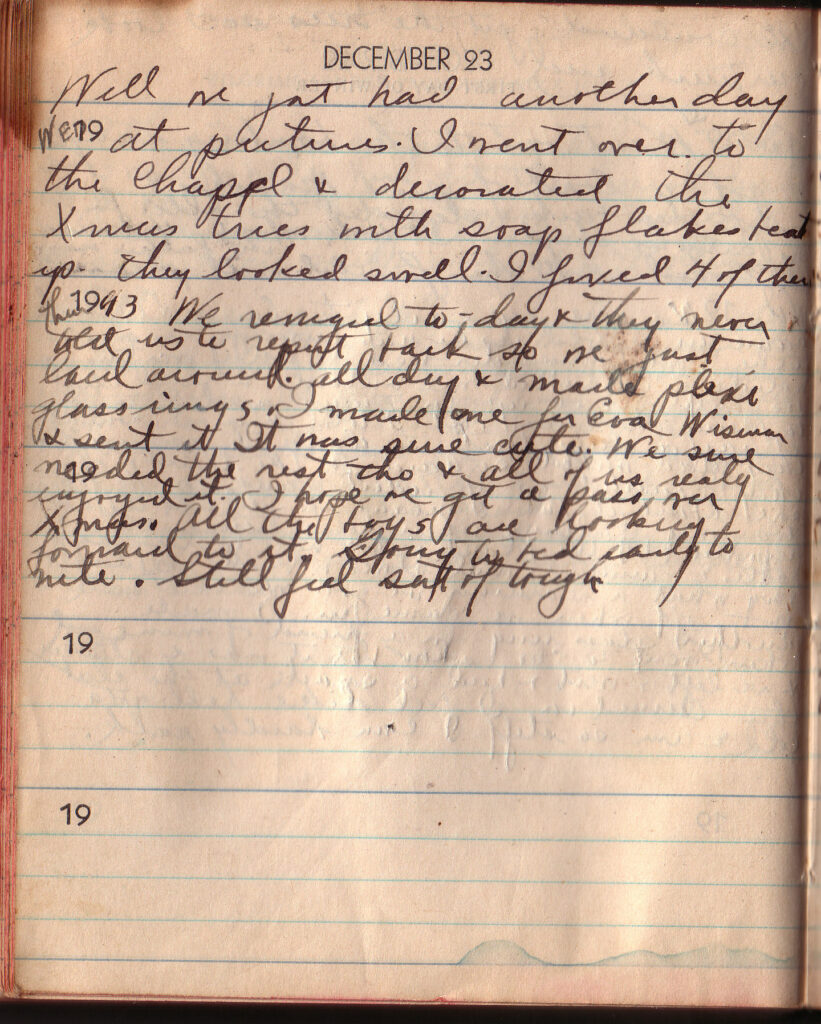 DECEMBER 23
Well we just had another day
Wed 19 at pictures. I went over to
the Chappel & decorated the
Xmas trees with soap flakes beat
up. They looked swell. I fixed 4 of them
Thur 1943 We reneged to-day & they never
told us to report back so we just
laid around all day & made plexi
glass rings. I made one for Eva Wiseman
& sent it It was sure cute. We sure
needed the rest tho & all of us realy
19
enjoyed it. I hope we get a pass over
Xmas. All the boys are looking
forward to it. Going to bed early to
nite. Still feel sort of tough
19
19